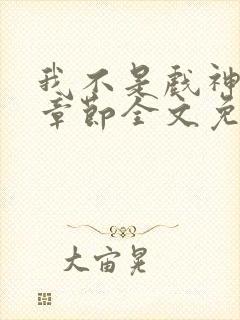 我不是戏神
章节全文免
大宙晃